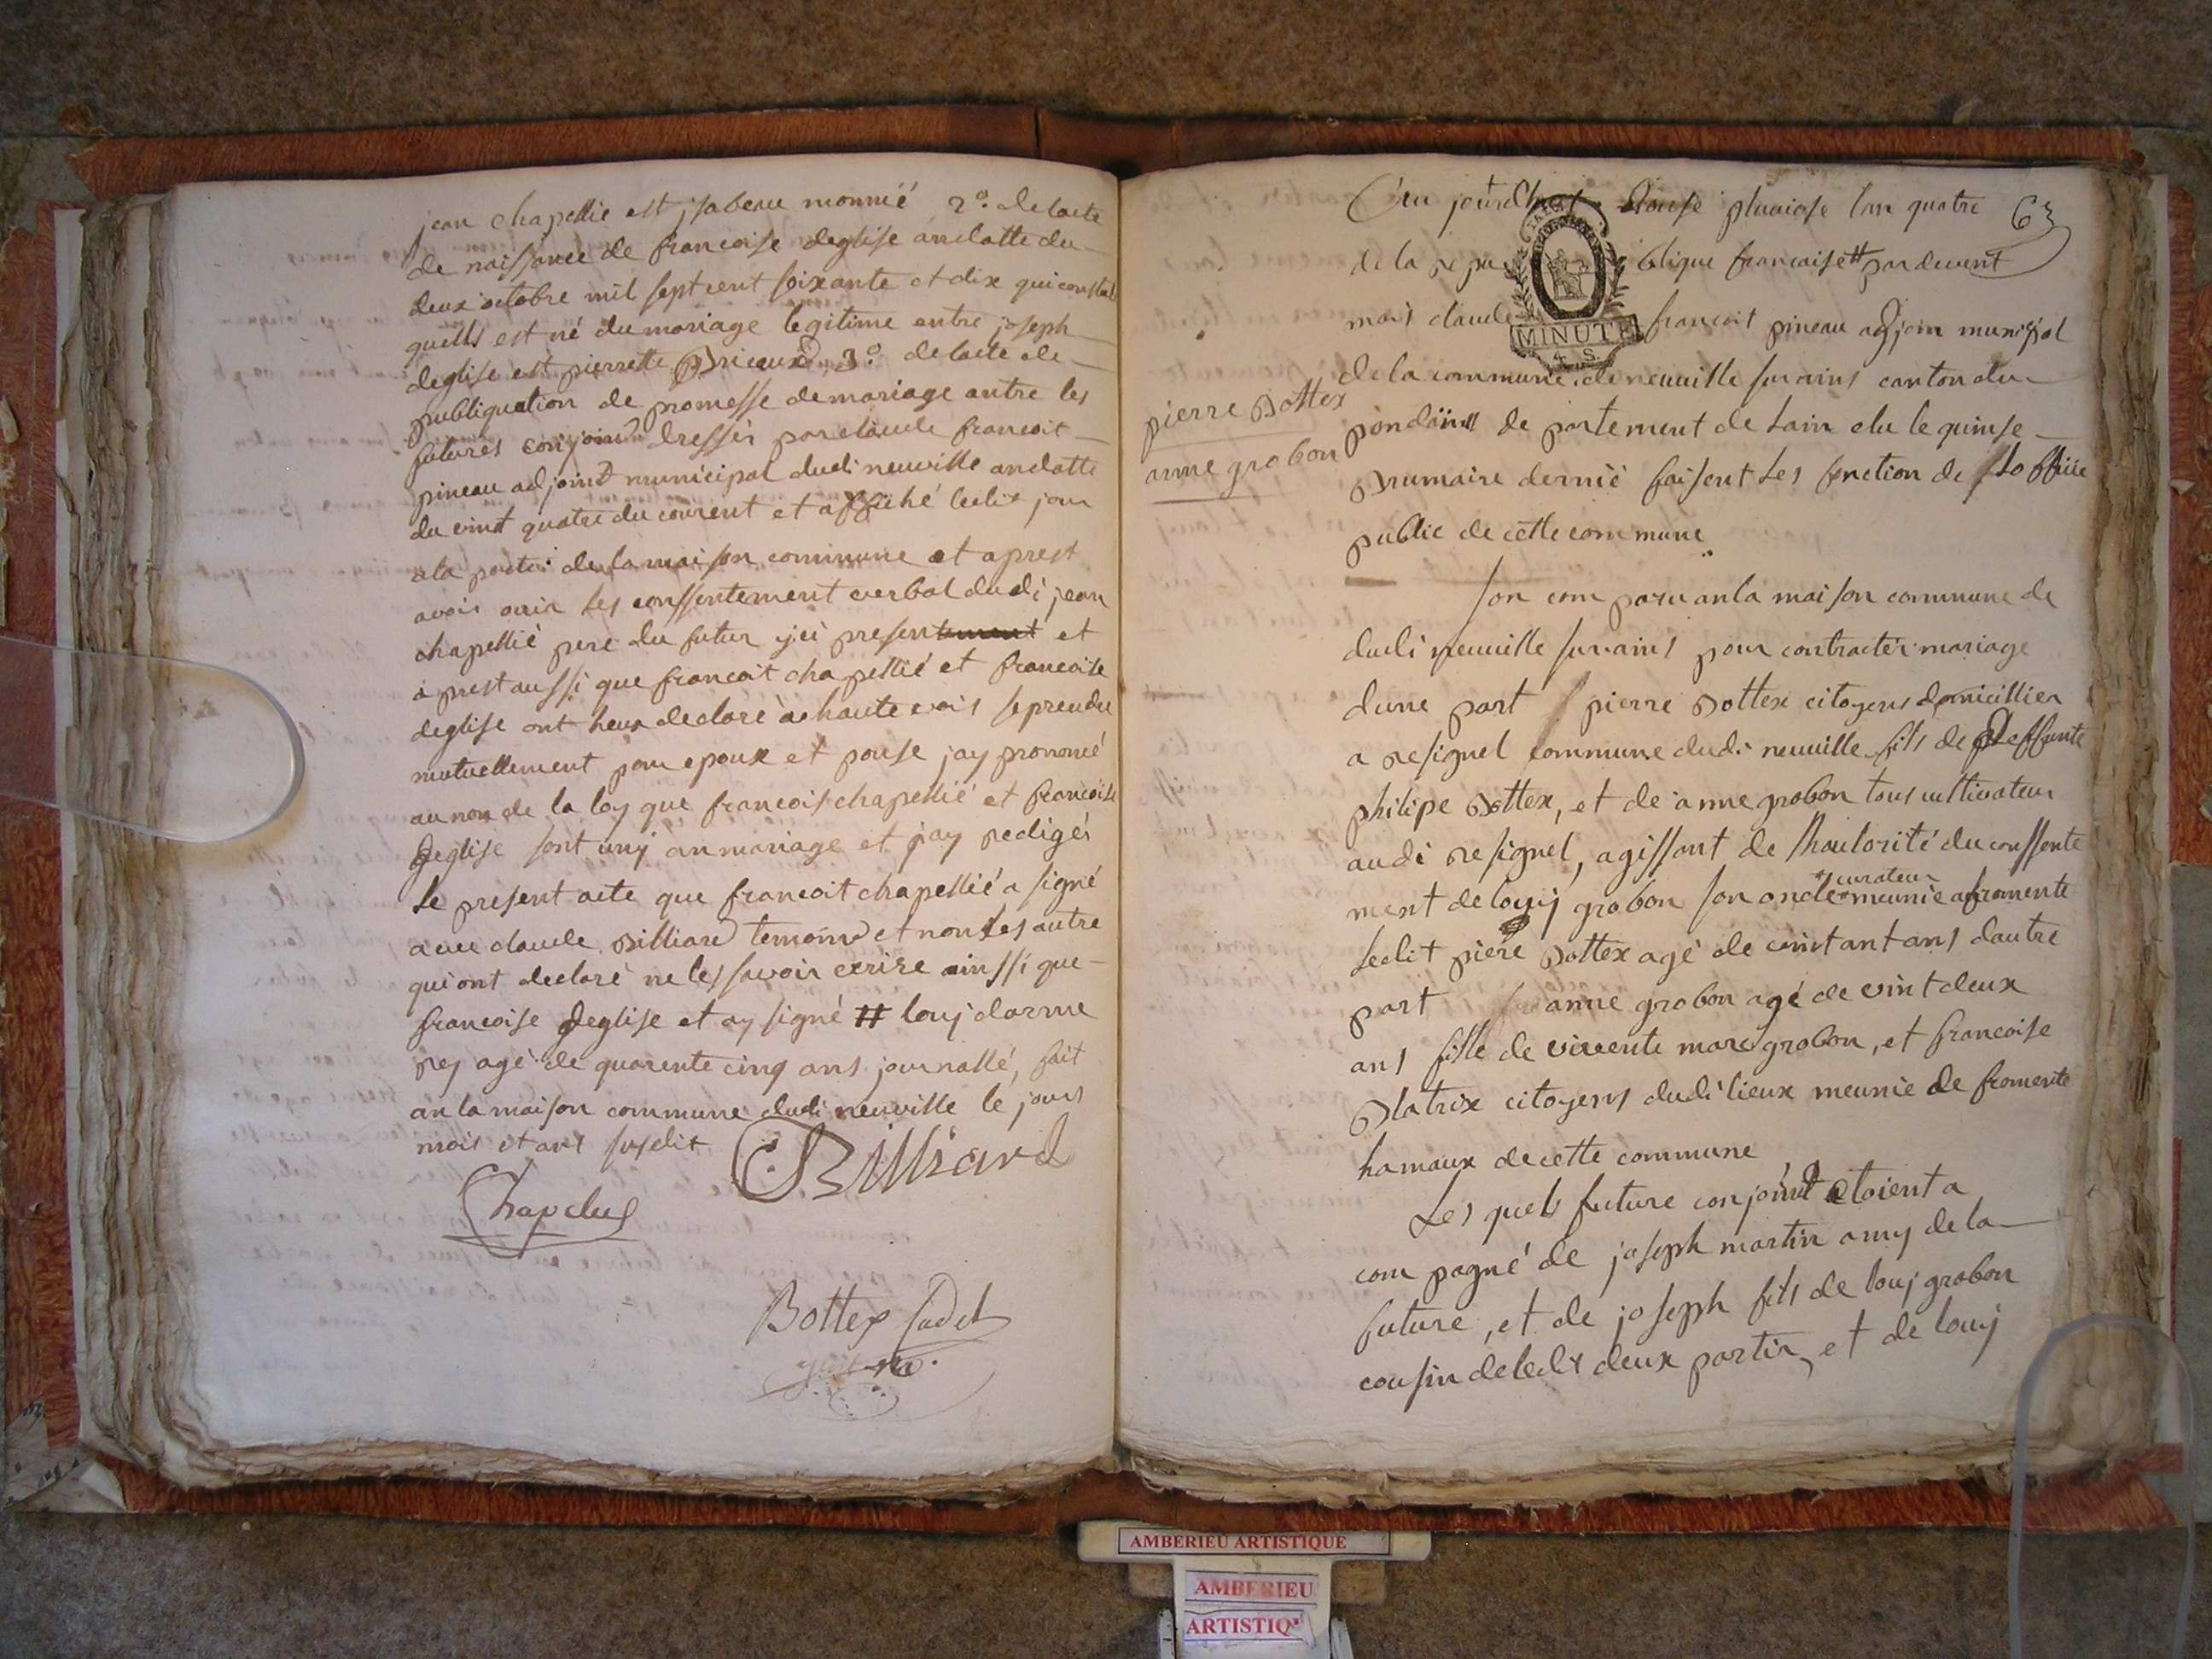 jean chapellié est jsabeau monnié 2° de lacte
de naissance de francoise deglise andatte du
deux octobre mil sept cent soixante et dix qui constat
quells est né du mariage legitime entre joseph
deglise est pierrette Brieaux, 3° de lacte de
publiquation de promesse de mariage antre les
futures conjoint dressér par claude francoit
pineau adjoint municipal dudi neuville andatte
du vint quatre du courent et affiché ledit jour
a la porte de la maison commune et aprest
avoir ouir les conssentement verbal dudi jean
chapellié pere du futur jci present et
a prest aussi que francoit chapellié et francoise
deglise ont heux declaré a haute vois se prendre
mutuellement pour epoux et pouse jay prononcé
au nom de la loy que francois chapellié et francoise
deglise sont unij an mariage et jay redigér
le present acte que francoit chapellié a signé
avec claude Billiard temoins et non les autre
qui ont declaré ne les savoir ecrire ainssi que
francoise deglise et ay signé # louj darme
rey agé de quarente cinq ans journallé, fait
an la maison commune dudi neuville le jours
mois et ant susdit
C. Billiard
Chapelus
Bottex Cadet
63
Ceu jourdhui douse pluviose lan quatre
de la repu blique francaise # par devent
mois claude francoit pineau adjoin municipal
MINUTE
4 S.
de la commune de neuville sur ains canton du
pondains de partement de Lain elu le quinse
Brumaire dernié faisent les fonction de Loffiié
public de cette commune
pierre Bottex
anne grobon
son com paru an la maison commune de
dudi neuville sur ains pour contractér mariage
dune part pierre Bottex citoyens domicillier
a resignel commune dudi neuville fils de deffunte
philipe Bottex, et de anne grobon tous cultivateur
audi resignel, agissant de lhautorité du conssente
ment de louij grobon son oncle curateur meunie a fromente
Ledit piere Bottex agé de vint ant ans dautre
part anne grobon agé de vint deux
ans fille de vivente marc grobon, et francoise
Blatrix citoyens dudi lieux meunie de fromente
hamaux de cette commune
Les quels future conjoint etoient a
com pagné de joseph martin amy de la
future, et de joseph fils de louj grobon
cousin deledit deux partir, et de louij
AMBERIEU ARTISTIQUE
AMBERIEU
ARTISTIQ